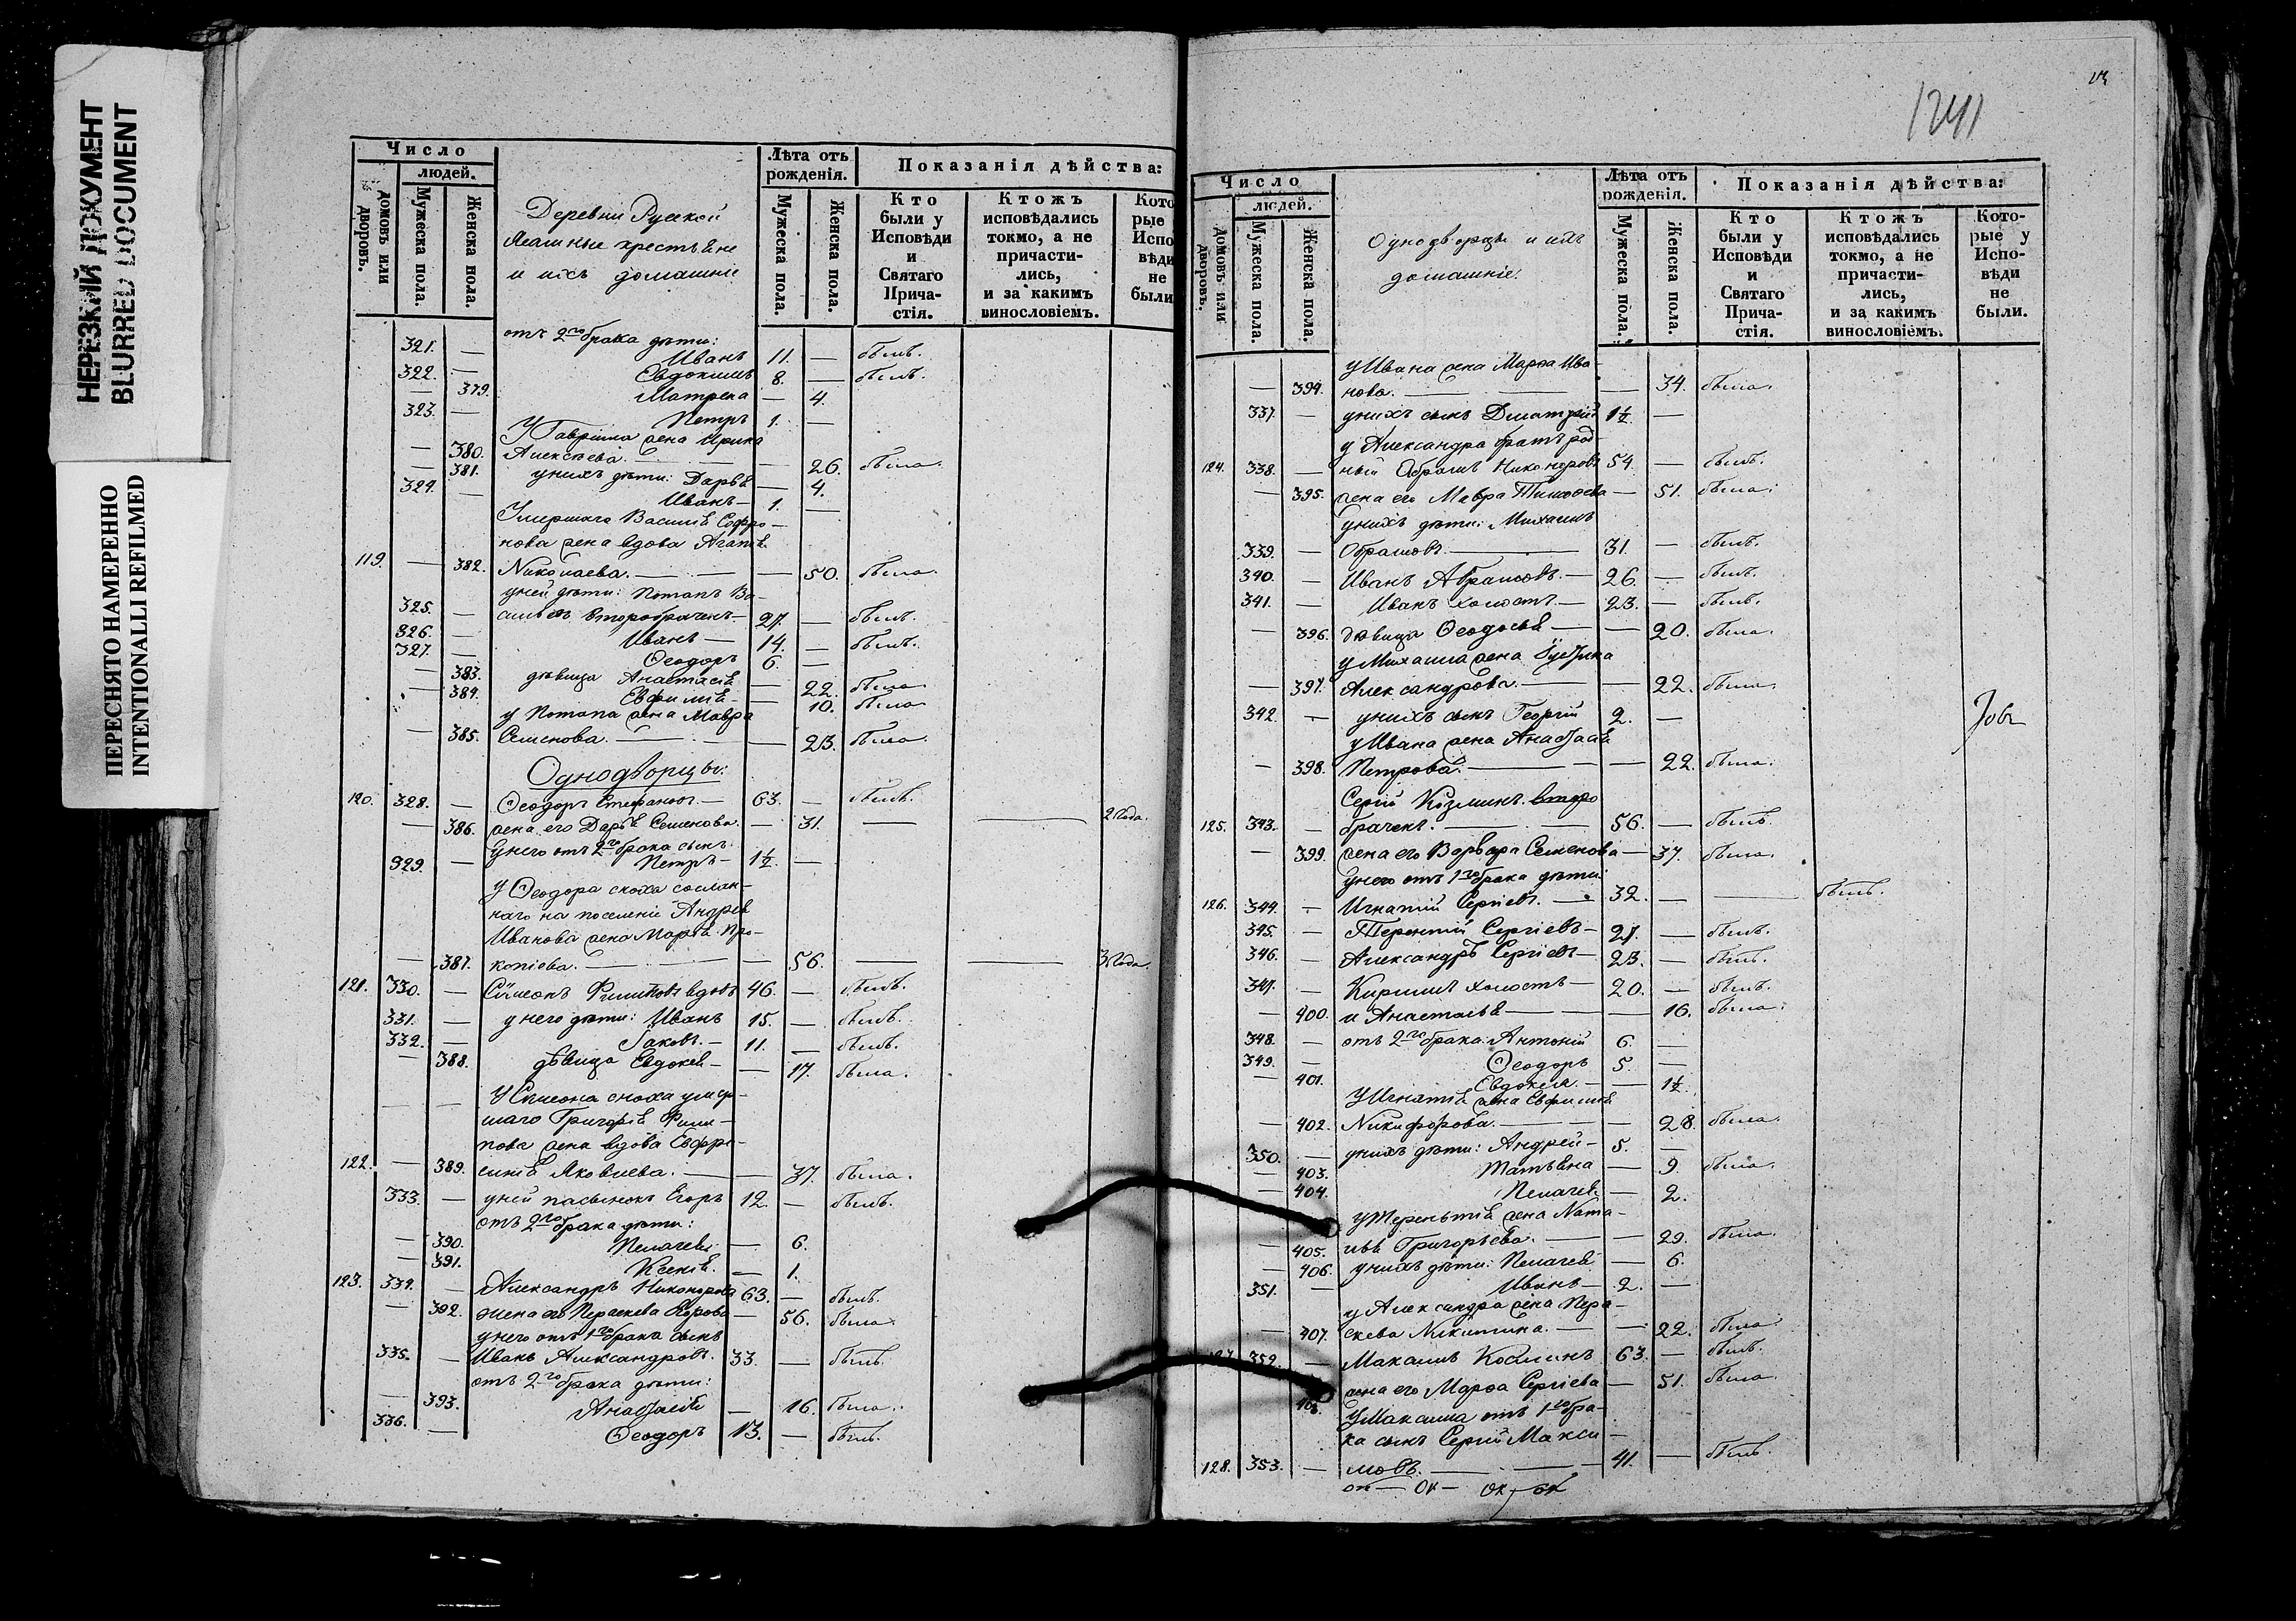 НЕРЕЗКИЙ ДОКУМЕНТ
BLURRED DOCUMENT
ПЕРЕСНЯТО НАМЕРЕННО
INTENTIONALLI REFILMED
Число
людей.
домовъ или дворовъ.
Мужеска пола.
Женска пола.
Деревни Русской
крестьяне
и ихъ домашніе
Лѣта отъ рожденія.
Мужеска пола.
Женска пола.
Показанія дѣйства:
Кто были у Исповѣди и Святаго Прича- стія.
Ктожъ исповѣдались токмо, а не причасти- лись, и за какимъ винословіемъ.
Кото рые Испо вѣди не были
отъ 2го брака дѣти:
321. — Иванъ 11. — былъ.
322. — Евдокимъ 8. — былъ.
— 379. Матрена — 4.
323. — Петръ 1. —
У Гавріила жена Ирина
— 380. Алексѣева. — 26. была.
— 381. у нихъ дѣти: Дарья — 4.
324. — Иванъ — 1. —
Умершаго Василія Софро-
нова жена вдова Агапія
119. — 382. Николаева. — 50. была.
у ней дѣти: Потапъ Ва-
325. — сильевъ второбраченъ — 27. — былъ.
326. — Иванъ — 14. — былъ.
327. — Ѳеодоръ 6. —
— 383. дѣвица Анастасія — 22. была
— 384. Евфимія — 10. была
у Потапа жена Мавра
— 385. Семенова. — 23. была.
Однодворцы:
120. 328. — Ѳеодоръ Стефановъ — 63. — былъ.
— 386. жена его Дарья Семенова. — 31. — — 2 года.
у него отъ 2го брака сынъ
329. — Петръ — 1½. —
У Ѳеодора сноха сослан-
наго на поселеніе Андрея
Иванова жена Марья Про-
— 387. копіева. — 56. — — 3 года.
121. 330. — Сімеонъ Филиповъ вдовъ 46. — былъ.
331. — у него дѣти: Иванъ 15. — былъ.
332. — Іаковъ. — 11. — былъ.
— 388. дѣвица Евдокія — — 17. была.
У Сімеона сноха умер-
шаго Григорія Фили-
пова жена вдова Евфро-
122. — 389. синія Яковлева. — 37. была.
333. — у ней пасынокъ Егоръ 12. — былъ.
отъ 2го брака дѣти:
— 390. Пелагея — 6.
— 391. Ксенія. — 1.
123. 334. — Александръ Никонорова 63. — былъ.
— 392. жена его Параскева Егорова — 56. была
у него отъ 1го брака сынъ
335. — Иванъ Александровъ. 33. — былъ.
отъ 2го брака дѣти:
— 393. Анастасія — 16. была.
336. — Ѳеодоръ 13. — былъ.
1241
Число
людей.
домовъ или дворовъ.
Мужеска пола.
Женска пола.
Однодворцы и ихъ
домашніе.
Лѣта отъ рожденія.
Мужеска пола.
Женска пола.
Показанія дѣйства:
Кто были у Исповѣди и Святаго Прича- стія.
Ктожъ исповѣдались токмо, а не причасти- лись, и за какимъ винословіемъ.
Кото- рые у Испо- вѣди не были.
у Ивана жена Марѳа Ива-
— 394. нова. — — 34. была.
337. — у нихъ сынъ Дмитрій 1½. —
у Александра братъ род-
124. 338. — ный Абрамъ Никоноровъ 54. — былъ.
— 395. жена его Мавра Тимоѳева — 51. была.
у нихъ дѣти: Михаилъ
339. — Абрамовъ. — 31. — былъ.
340. — Иванъ Абрамовъ. — 26. — былъ.
341. — Иванъ холостъ. — 23. — былъ.
— 396. дѣвица Ѳеодосія — — 20. была.
у Михаила жена
— 397. Александрова. — — 22. была.
342. — у нихъ сынъ Георгій 2. —
у Ивана жена Анастасія
— 398. Петрова. — — 22. была.
Сергій Козминъ второ
125. 343. — браченъ. — 56. — былъ.
— 399. жена его Варвара Семенова — 37. была.
у него отъ 1го брака дѣти:
126. 344. — Игнатій Сергіевъ. — 32. — — былъ.
345. — Терентій Сергіевъ — 27. — былъ.
346. — Александръ Сергіевъ — 23. — былъ.
347. — Кирилъ холостъ — 20. — былъ.
— 400. и Анастасія — — 16. была.
348. — отъ 2го брака: Антоній 6. —
349. — Ѳеодоръ 5. —
— 401. Евдокія. — — 1½.
У Игнатія жена Евфимія
— 402. Никифорова. — — 28. была.
350. — у нихъ дѣти: Андрей — 5. —
— 403. Татьяна — 9. была.
— 404. Пелагея — 2.
у Терентія жена Ната-
— 405. лья Григорьева. — — 29. была.
— 406. у нихъ дѣти: Пелагея — 6.
351. — Иванъ — 2. —
у Александра жена Пера-
— 407. скева Никитина. — — 22. была.
127. 352. — Максимъ Козминъ 63. — былъ.
жена его Марѳа Сергіева — 51. была.
У Максима отъ 1го бра-
ка сынъ Сергій Макси-
128. 353. — мовъ. — — 41. — былъ.